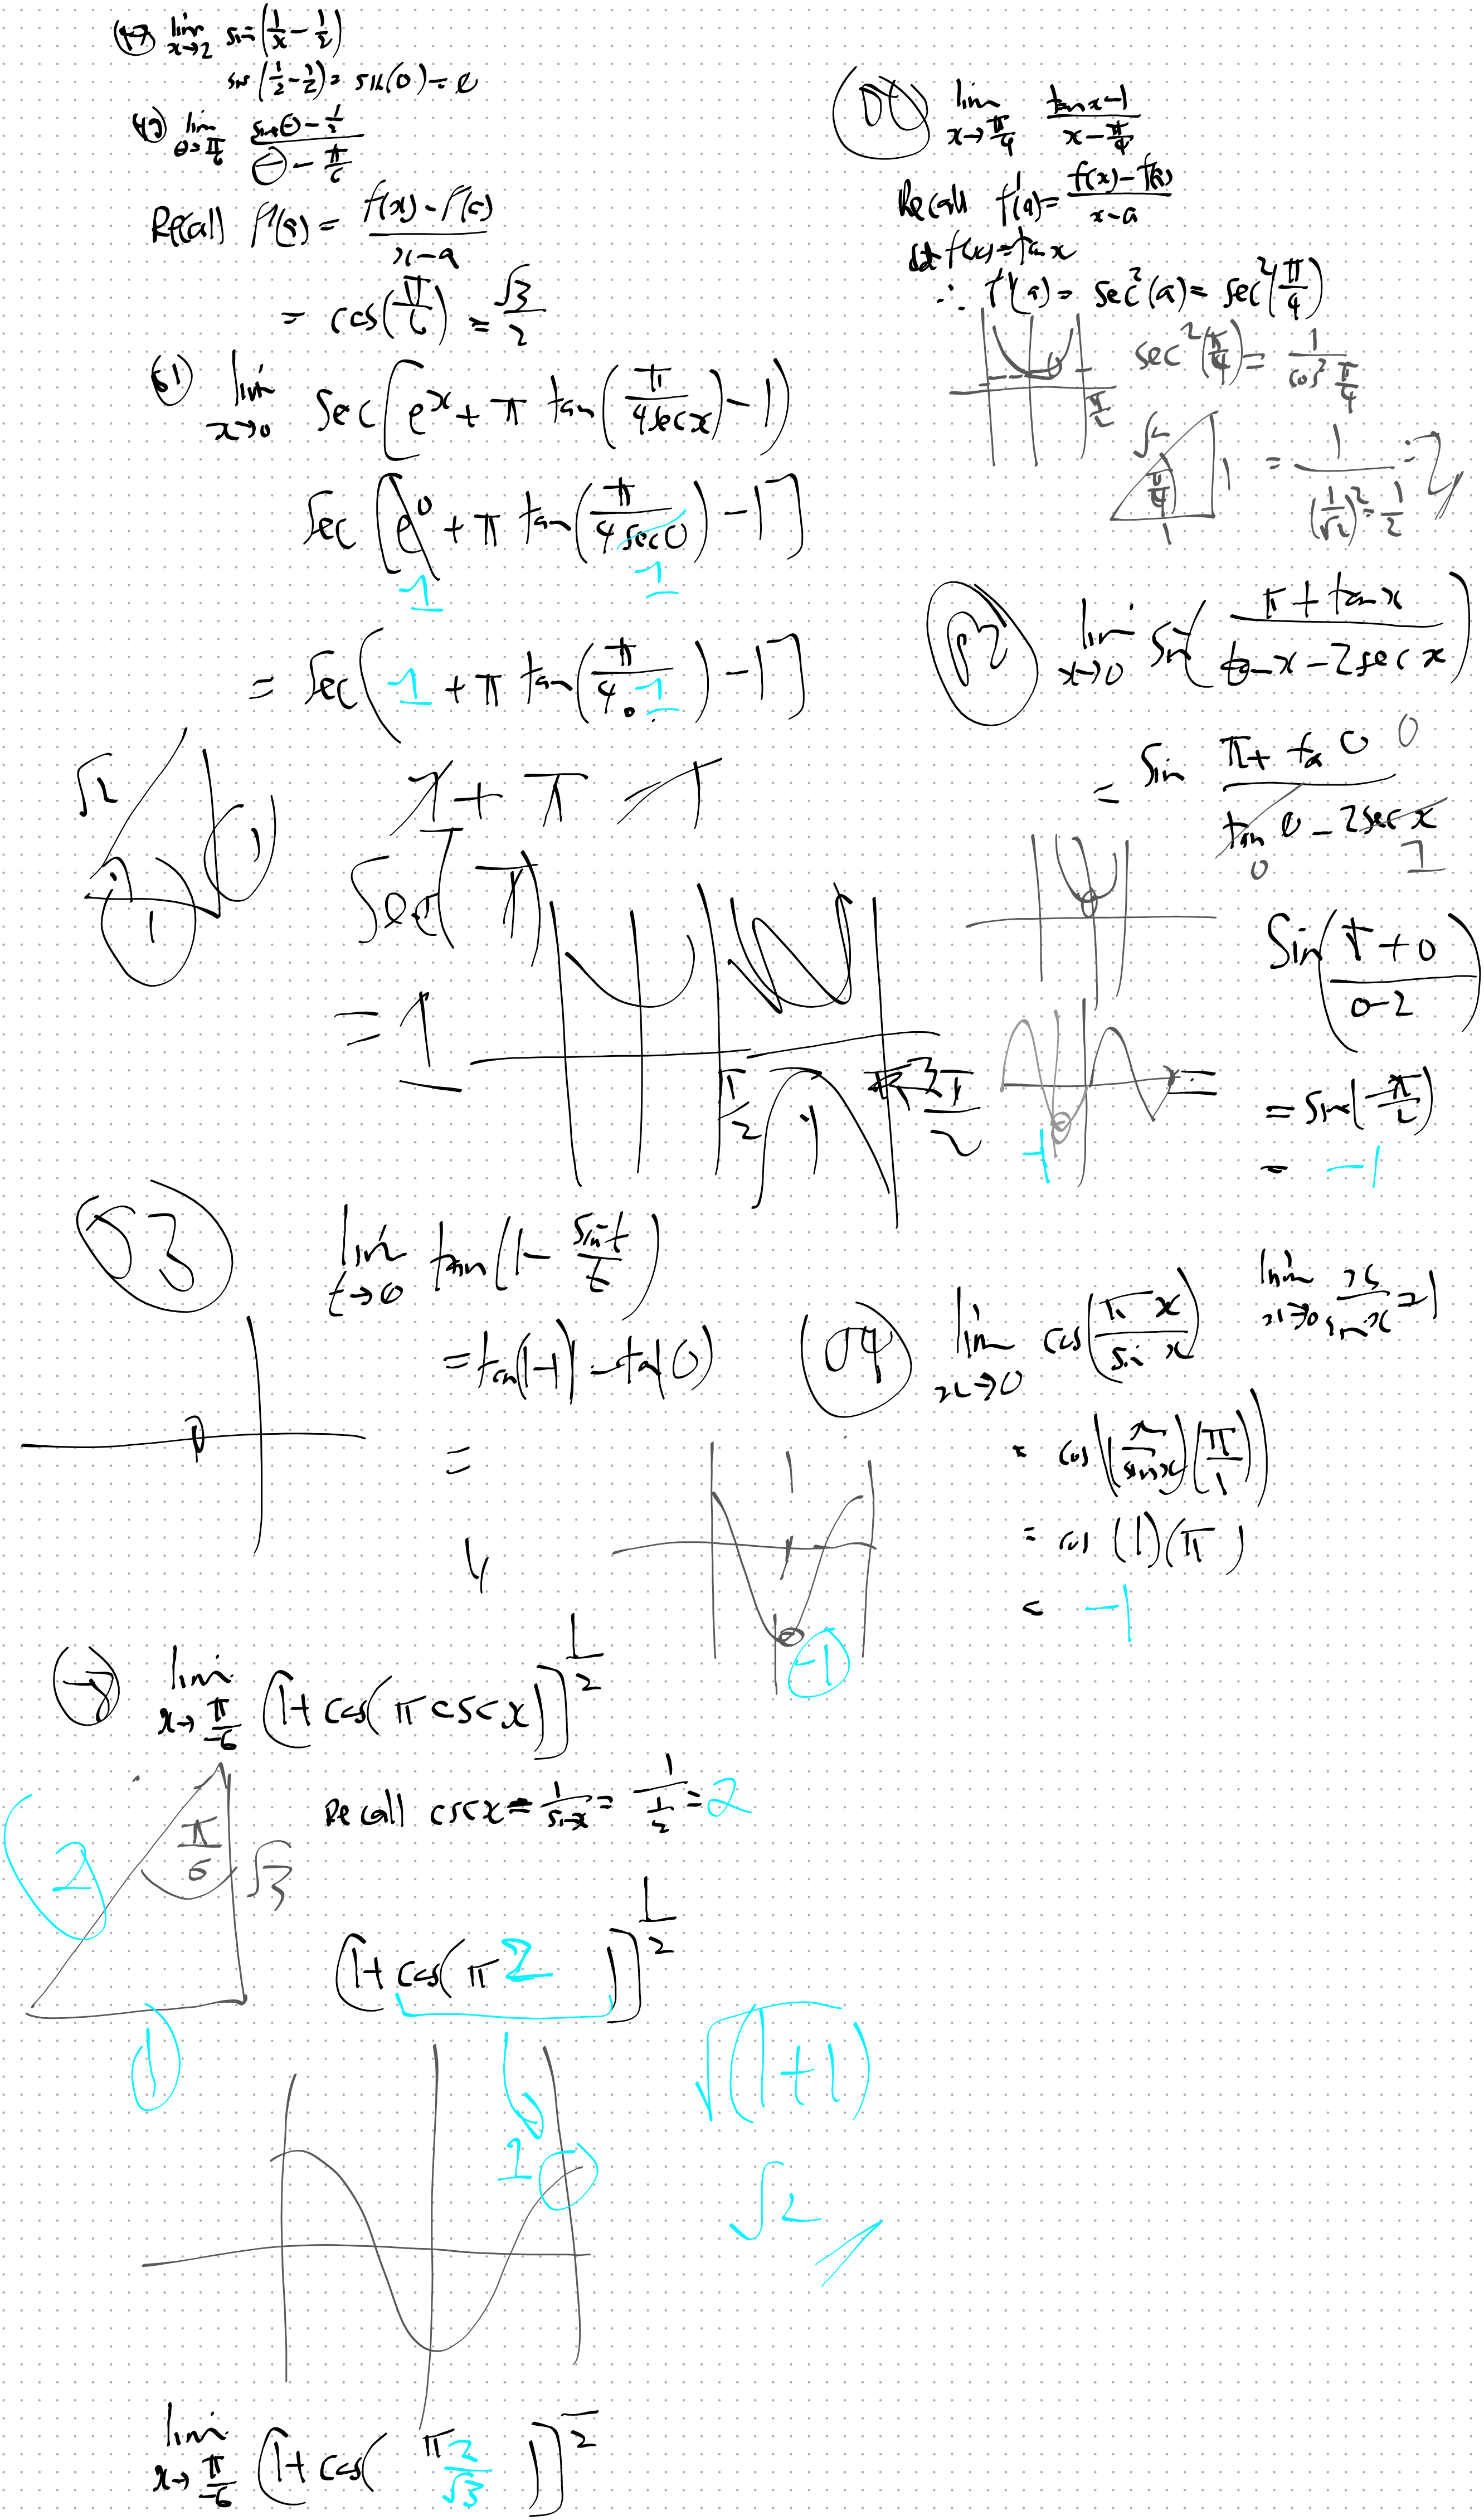 47) lim x→2 sin(1/x − 1/2)
sin(1/2 − 1/2) = sin(0) = 0
49) lim θ→π/6 (sinθ − 1/2)/(θ − π/6)
Recall f'(a) = (f(x) − f(a))/(x − a)
= cos(π/6) = √3/2
51) lim x→0 sec[e^x + π tan(π/(4 sec x)) − 1]
sec[e^0 + π tan(π/(4 sec 0)) − 1]
1 1
= sec[1 + π tan(π/(4·1)) − 1]
√2
1
1
1 + π − 1
sec(π)
= 1
π/2
3π/2
50) lim x→π/4 (tan x − 1)/(x − π/4)
Recall f'(a) = (f(x) − f(a))/(x − a)
let f(x) = tan x
∴ f'(a) = sec²(a) = sec²(π/4)
sec²(π/4) = 1/cos² π/4
π/2
√2
π/4
1
1
= 1/((1/√2)² = 1/2) = 2
52) lim x→0 sin((π + tan x)/(tan x − 2 sec x))
= sin (π + ta 0)/(tan 0 − 2 sec x)
0
0
1
sin((π + 0)/(0 − 2))
= sin(−π/2)
= −1
−1
53) lim t→0 tan(1 − sin t/t)
= tan(1−1) = tan(0)
=
54) lim x→0 cos(π x/sin x)
lim x→0 x/sin x = 1
= cos((x/sin x)(π/1))
= cos (1)(π)
= −1
−1
lim x→π/6 [1 + cos(π csc x)]^1/2
Recall csc x = 1/sin x = 1/(1/2) = 2
2
π/6
√3
1
[1 + cos(π 2)]^1/2
1
√(1+1)
√2
lim x→π/6 [1 + cos(π 2/√3)]^1/2